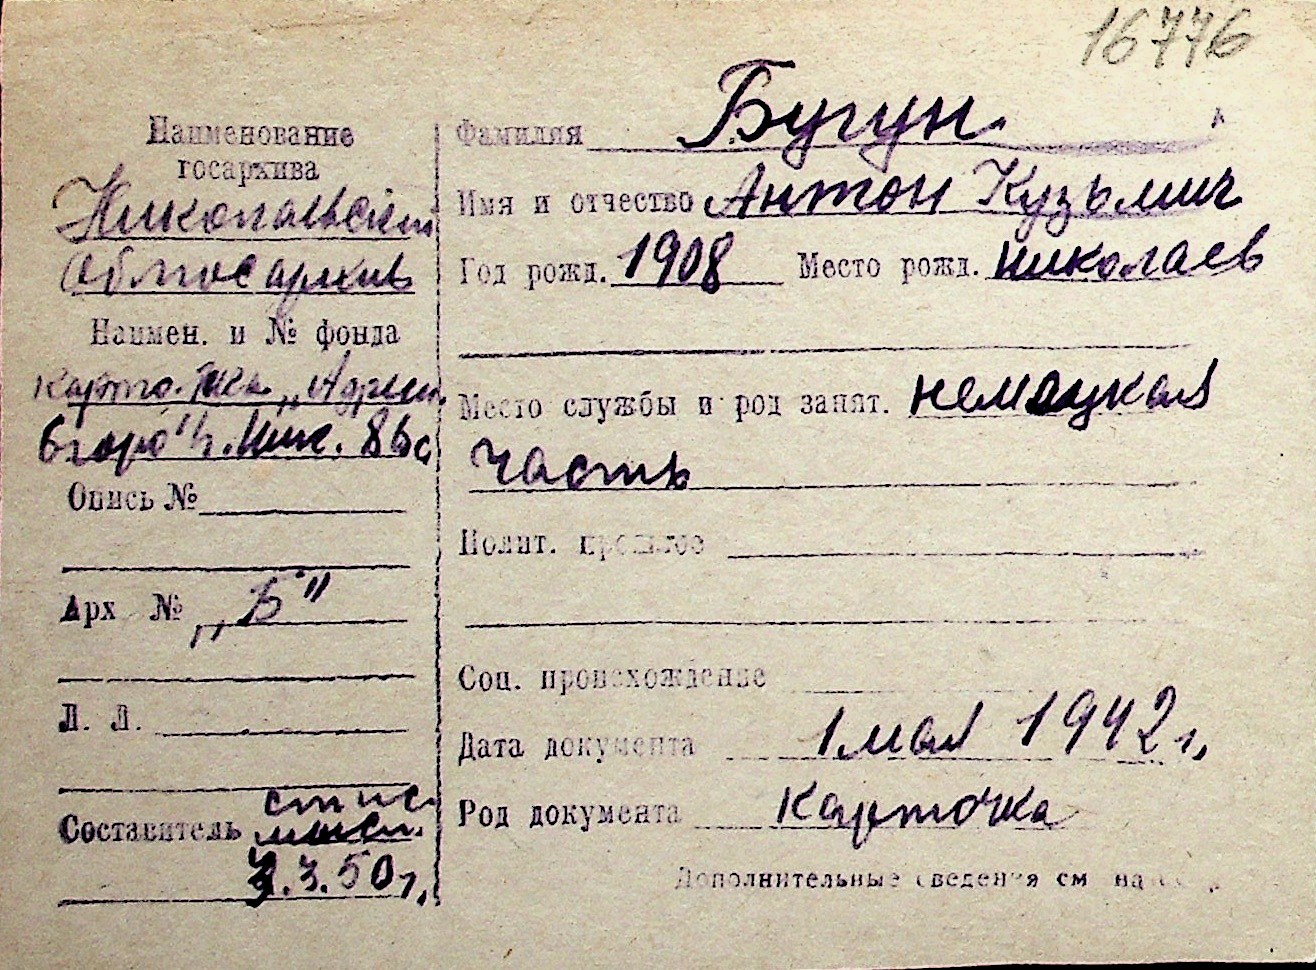 16776
Наименование
госархива
Николаевский
Облгосархив
Наимен. и № фонда
картотека „Адресн.
бюро"
Опись №
Арх № „Б"
Л. Л.
Составитель
3.50 г.
Фамилия Бугун
Имя и отчество Антон Кузьмич
Год рожд. 1908 Место рожд. Николаев
Место службы и род занят. немецкая
часть
Полит. прошлое
Соц. происхождение
Дата документа 1 мая 1942 г.
Род документа карточка
Дополнительные сведения см на